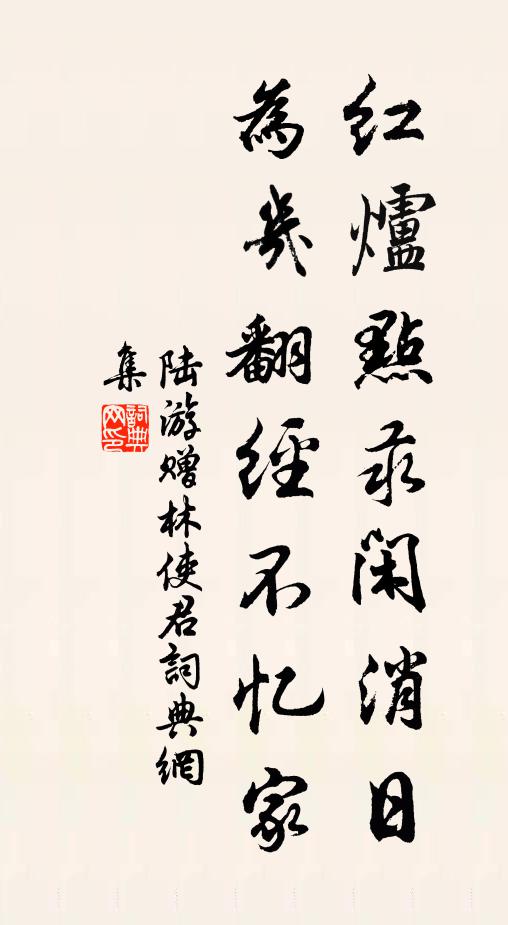 红爐點汞閑消日
為幾翻經不忆家
陆游赠林使君詞典網
集
詞典网印